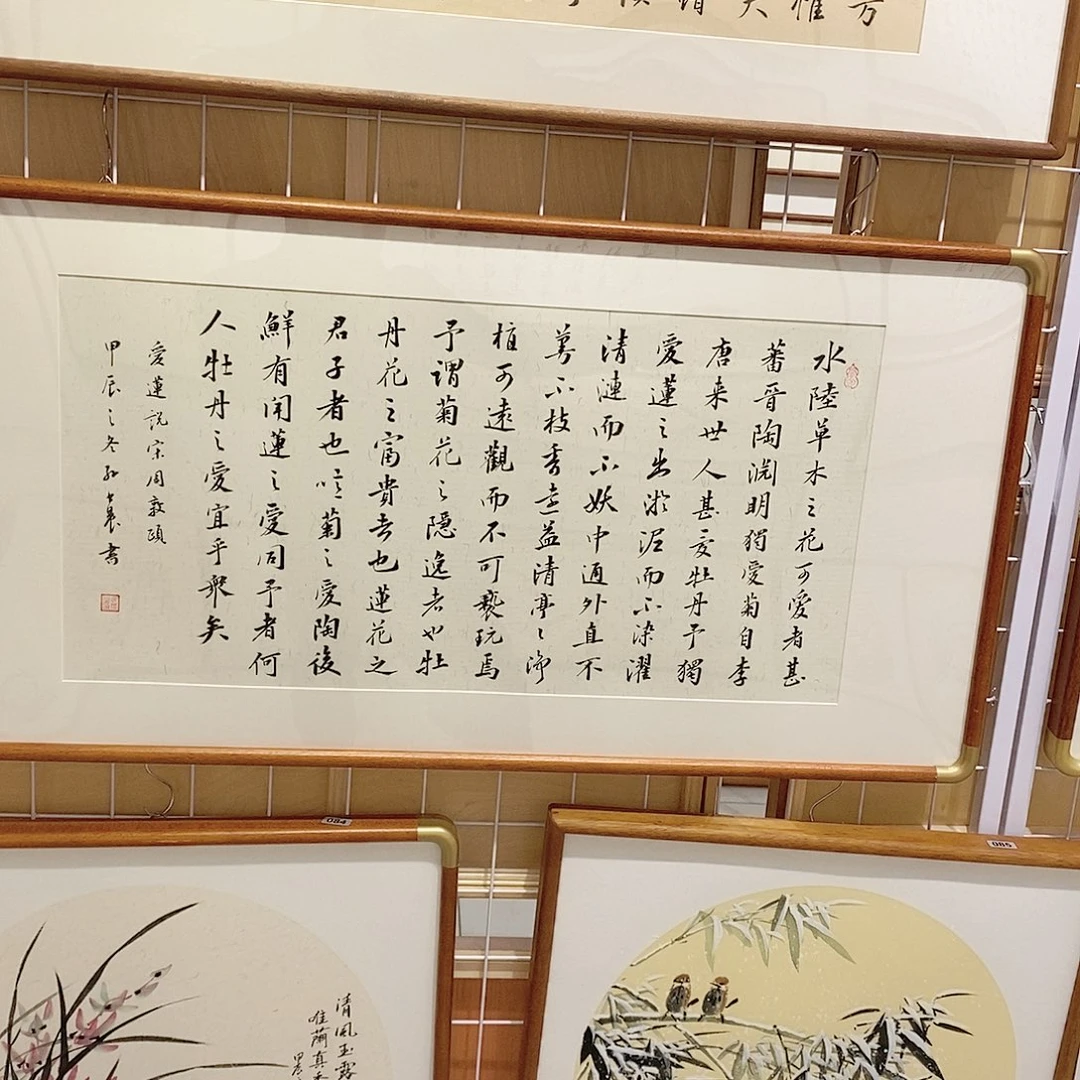 水陸草木之花可愛者甚
蕃晉陶淵明獨愛菊自李
唐来世人甚愛牡丹予獨
愛蓮之出淤泥而不染濯
清漣而不妖中通外直不
蔓不枝香遠益清亭〻净
植可遠觀而不可褻玩焉
予謂菊花之隱逸者也牡
丹花之富貴者也蓮花之
君子者也噫菊之愛陶後
鮮有闻蓮之愛同予者何
人牡丹之愛宜乎衆矣
愛蓮説宋周敦頤
甲辰之冬孙晨書
084
085
清風玉露
唯蘭真